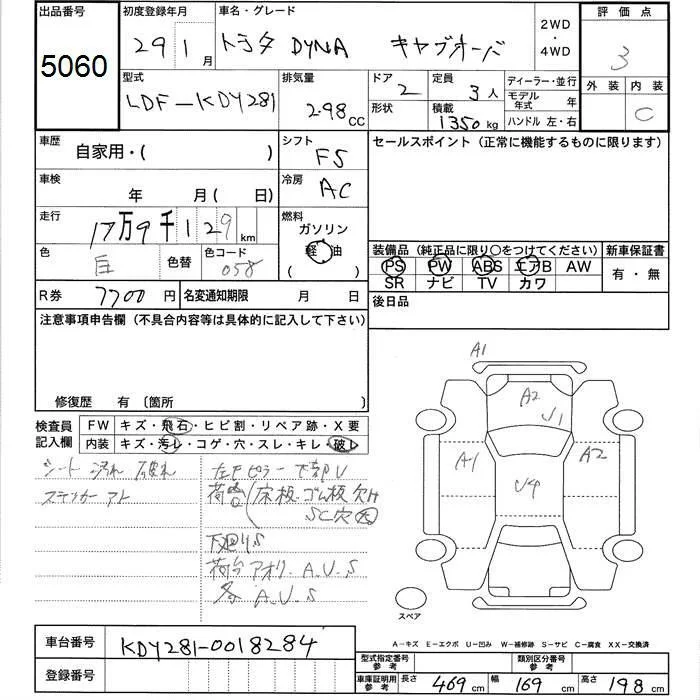 出品番号
5060
初度登録年月
29 1 月
車名・グレード
トヨタ DYNA キャブオーバ
2WD
・
4WD
評価点
3
型式
LDF-KDY281
排気量
2.98 CC
ドア
2
形状
定員
3 人
積載
1350 kg
ディーラー・並行
モデル年式 年
ハンドル 左・右
外装 内装
C
車歴
自家用・( )
シフト
F5
セールスポイント(正常に機能するものに限ります)
車検
年 月( 日)
冷房
AC
走行
17万9千129 km
燃料
ガソリン
軽油
( )
色
白
色替
色コード
058
装備品(純正品に限り○をつけてください)
PS PW ABS エアB AW
SR ナビ TV カワ
新車保証書
有・無
R券 7700 円
名変通知期限 月 日
後日品
注意事項申告欄(不具合内容等は具体的に記入して下さい)
修復歴 有〔箇所
検査員記入欄
FW キズ・飛石・ヒビ割・リペア跡・X要
内装 キズ・汚レ・コゲ・穴・スレ・キレ・破レ
シート 汚れ 破れ
ステッカーアト
左Fピラー下部U
荷台(床板・ゴム板欠H
SC穴大
下回りS
荷台アオリ A.U.S
各 A.U.S
A1
A2
U1
A1
A2
U4
スペア
車台番号
KDY281-0018284
登録番号
A-キズ E-エクボ U-凹み W-補修跡 S-サビ C-腐食 XX-交換済
型式指定番号 参考
類別区分番号 参考
車庫証明用 参考
長さ 469 cm
幅 169 cm
高さ 198 cm